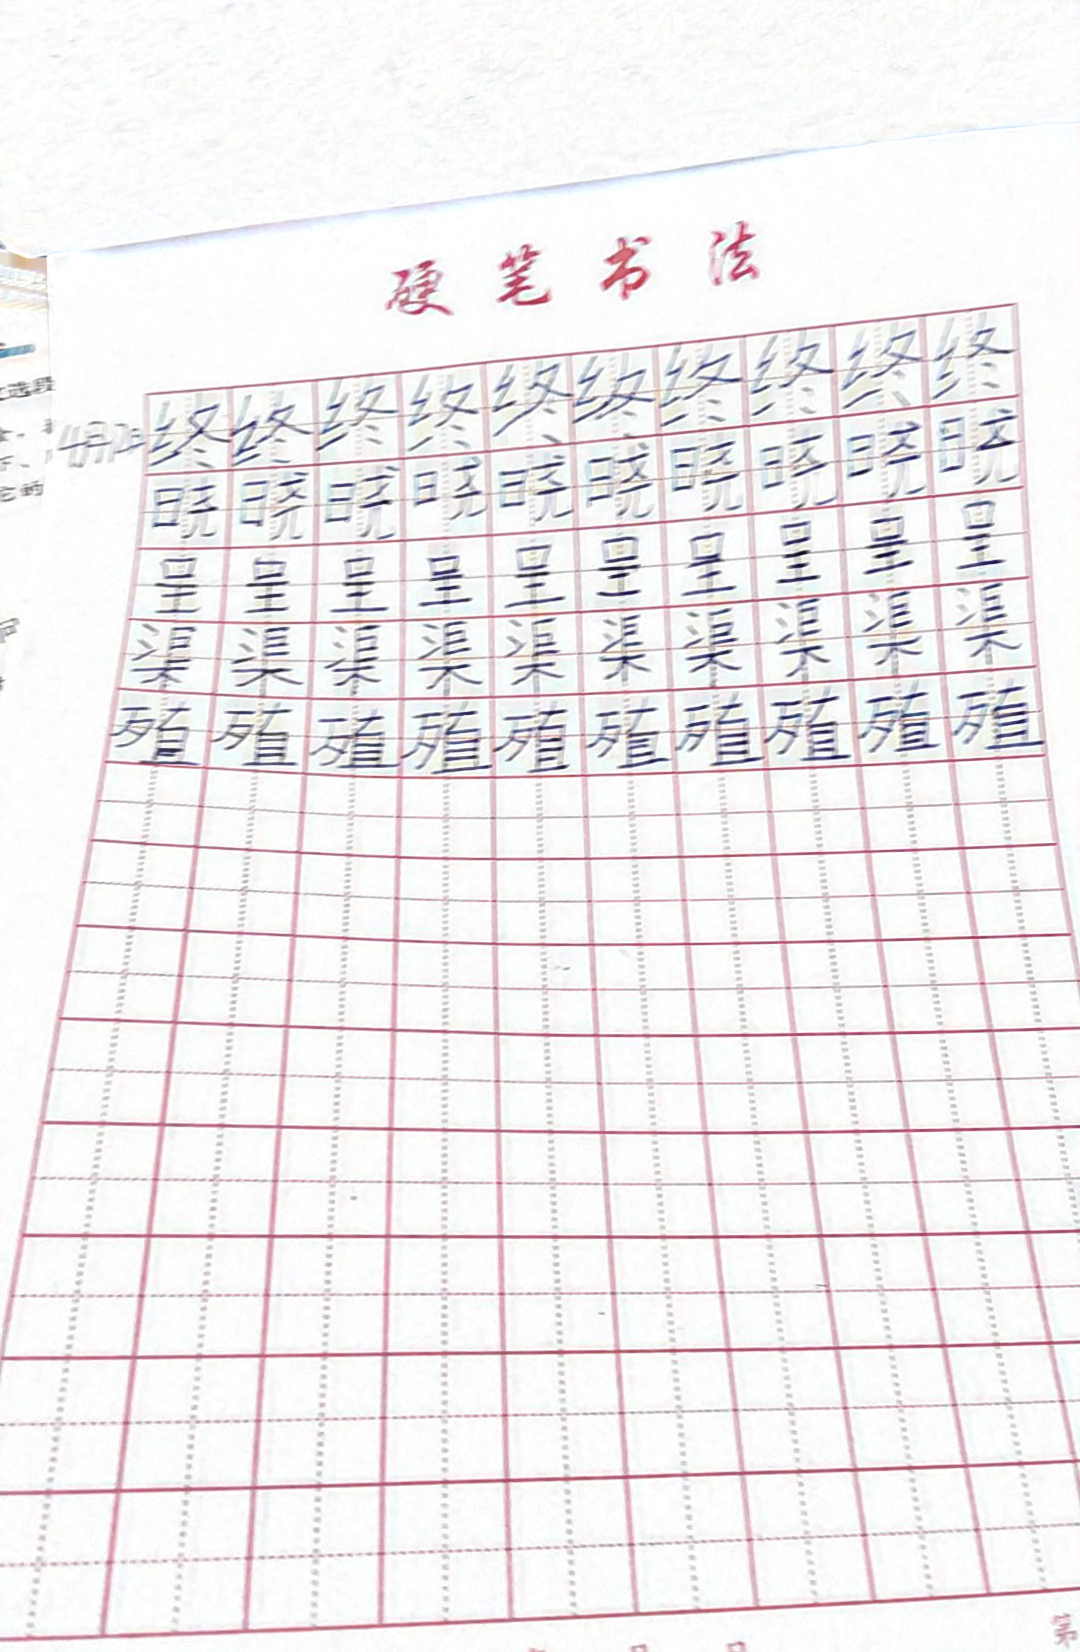 硬笔书法
终终终终终终终终终终
晓晓晓晓晓晓晓晓晓晓
呈呈呈呈呈呈呈呈呈呈
渠渠渠渠渠渠渠渠渠渠
殖殖殖殖殖殖殖殖殖殖
选段
它的
第